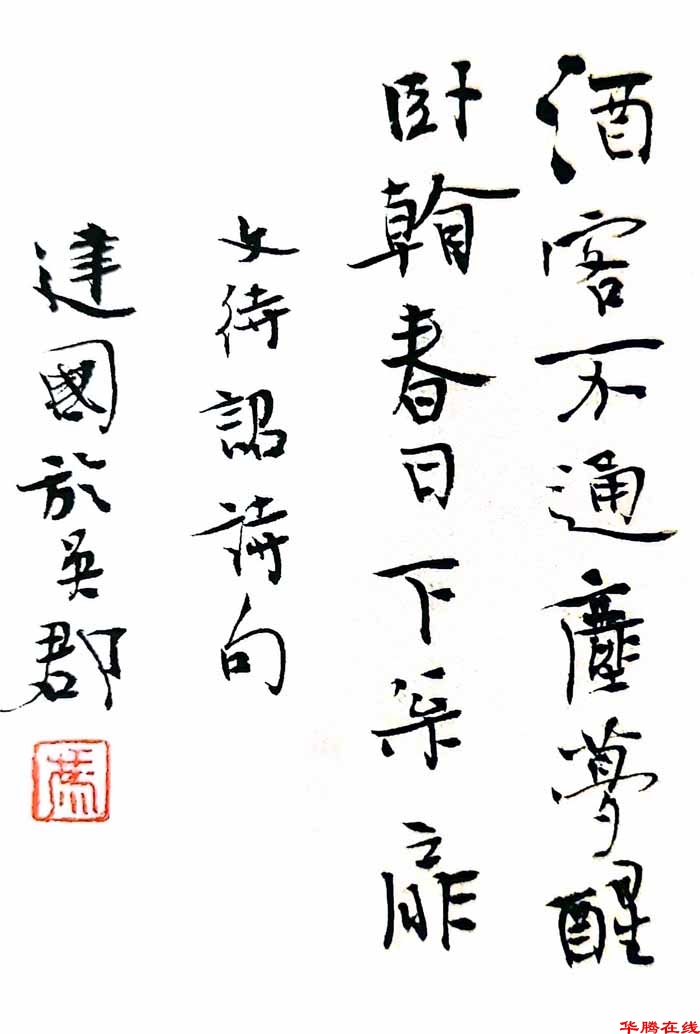 酒客不通塵夢醒
卧看春日下松扉
文待詔詩句
建國於吳郡
华腾在线